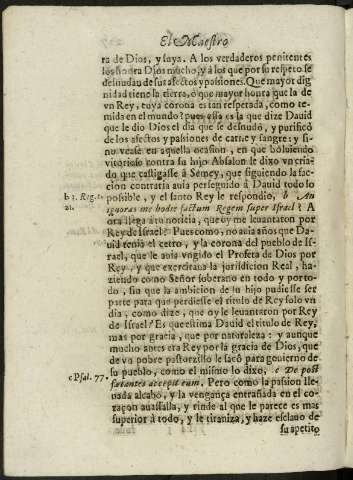 El Maestro
ra de Dios, y suya. A los verdaderos penitentes
los honra Dios mucho, y à los que por su respeto se
desnudan de sus afectos y pasiones. Que mayor dig
nidad tiene la tierra, ò que mayor honra que la de
vn Rey, cuya corona es tan respetada, como te-
mida en el mundo? pues essa es la que dize Dauid
que le dio Dios el dia que se desnudò, y purificò
de los afectos y pasiones de carne y sangre: y si-
no vease en aquella ocasion, en que boluiendo
vitorioso contra su hijo Absalon le dixo vn cria-
do que castigasse à Semey, que siguiendo la fac-
cion contraria auia perseguido à Dauid todo lo
b 2. Reg. 1.
21.
possible, y el santo Rey le respondio, b An
ignoras me hodie factum Regem super Israel? A
ora llega a tu noticia, que oy me leuantaron por
Rey de Israel? Pues como, no auia años que Da-
uid tenia el cetro, y la corona del pueblo de Is-
rael, que le auia vngido el Profeta de Dios por
Rey, y que exercitaua la jurisdicion Real, ha-
ziendo como Señor soberano en todo y por to-
do, sin que la ambicion de su hijo pudiesse ser
parte para que perdiesse el titulo de Rey solo vn
dia, como dize, que oy le leuantaron por Rey
de Israel? Es que estima Dauid el titulo de Rey,
mas por gracia, que por naturaleza: y aunque
mucho antes era Rey por la gracia de Dios, que
de vn pobre pastorzillo le sacò para gouierno de
su pueblo, como el mismo lo dixo, c De post
c Psal. 77.
fœtantes accepit eum. Pero como la passion lle-
nada al cabo, y la vengança entrañada en el co-
raçon auassalla, y rinde al que le parece es mas
superior à todo, y le tiraniza, y haze esclauo de
su apetito